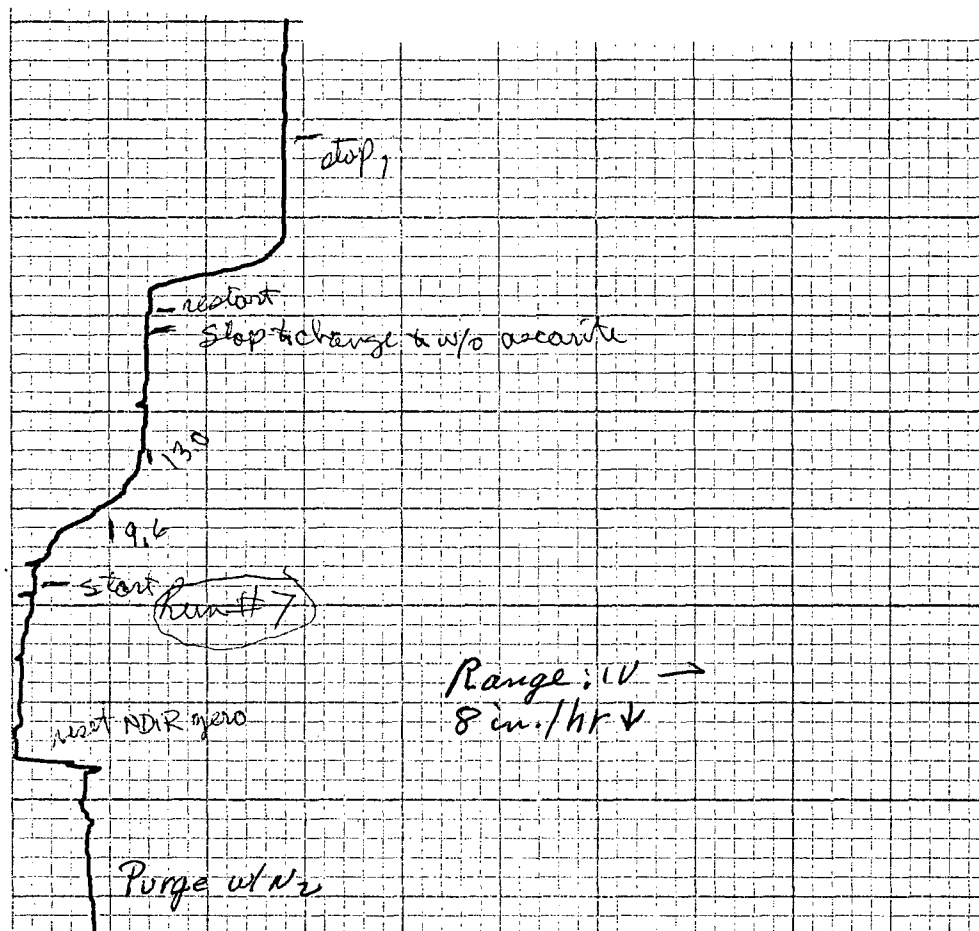 stop,
restart
Stop & change to w/o ascarite
13.0
9.6
start
Run #7
Range: 1V →
8 in./hr ↓
reset NDIR zero
Purge w/ N2